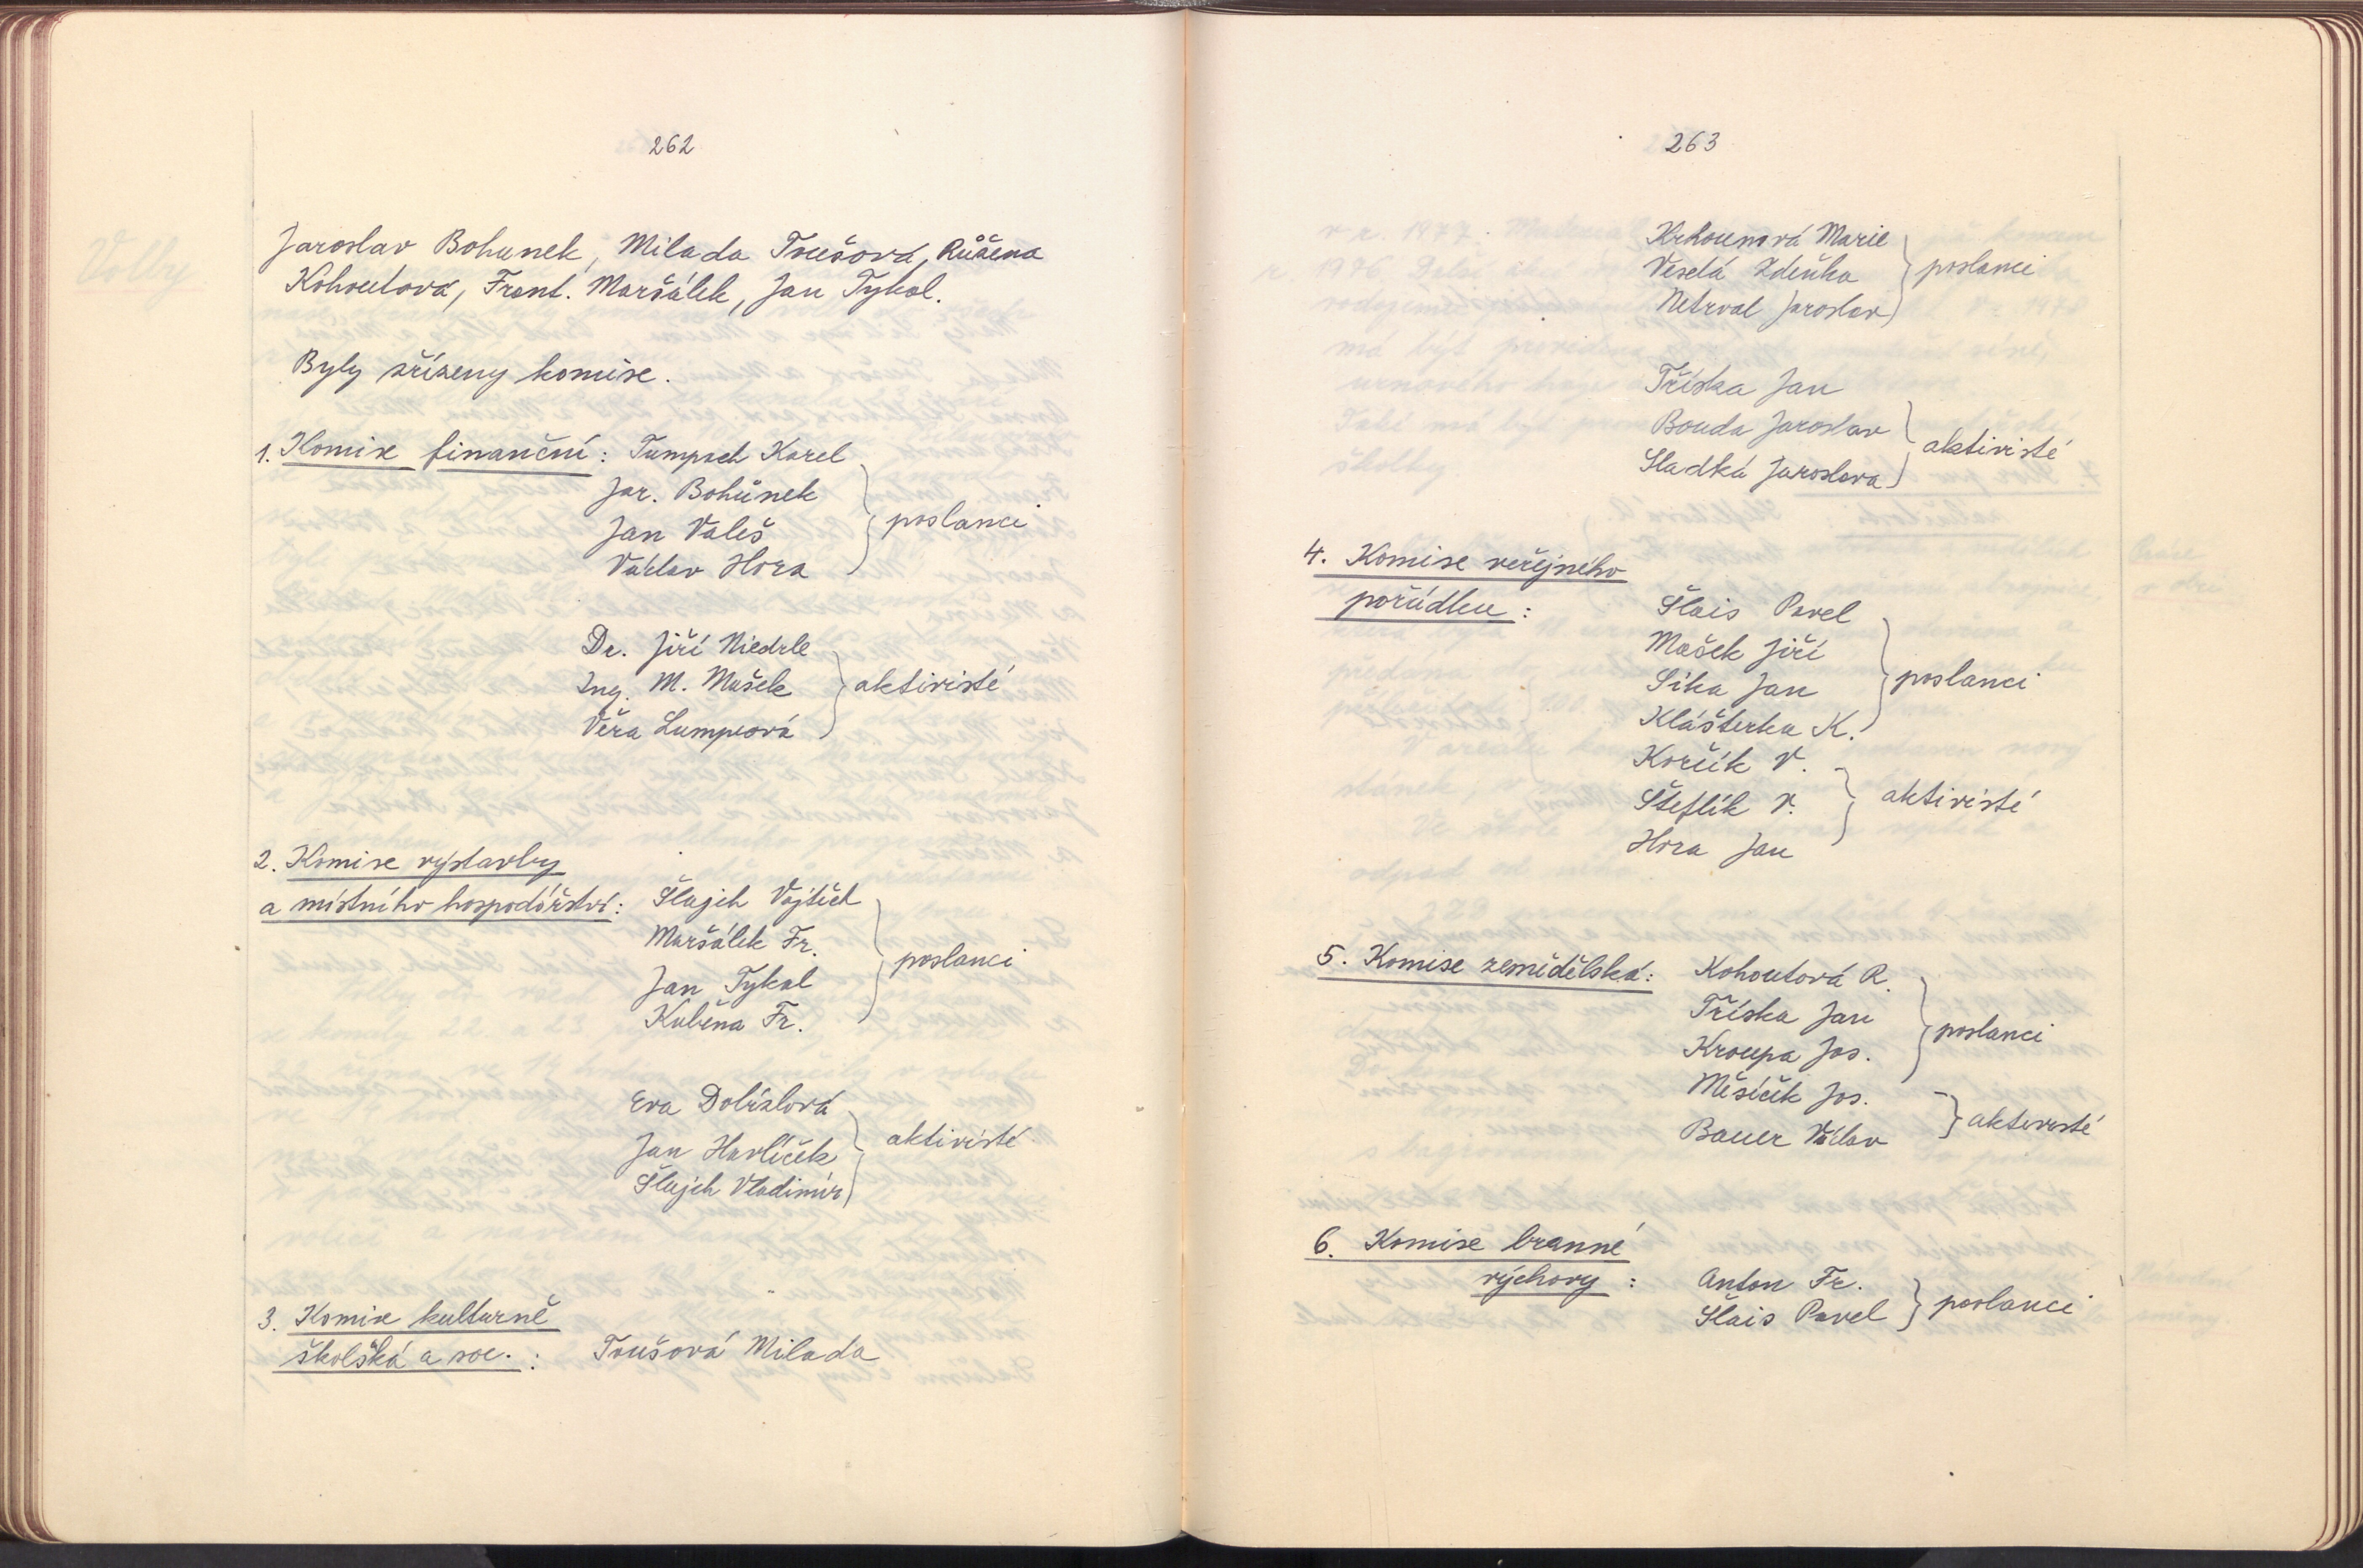 262
Jaroslav Bohunek, Milada Toušová, Růžena
Kohoutová, Frant. Maršálek, Jan Tykal.
Byly zřízeny komise.
1. Komise finanční: Tumpach Karel
Jar. Bohůnek
Jan Valeš
Václav Hora
poslanci
Dr. Jiří Niedrle
Ing. M. Mašek
Věra Lumprová
aktivisté
2. Komise výstavby
a místního hospodářství: Šlajch Vojtěch
Maršálek Fr.
Jan Tykal
Kuběna Fr.
poslanci
Eva Dolízlová
Jan Havlíček
Šlajch Vladimír
aktivisté
3. Komise kulturně
školská a soc.: Toušová Milada
263
Krkounová Marie
Veselá Zdeňka
Netrval Jaroslav
poslanci
Tříska Jan
Bouda Jaroslav
Sladká Jaroslava
aktivisté
4. Komise veřejného
pořádku: Šlais Pavel
Mašek Jiří
Sika Jan
Klášterka K.
poslanci
Korčík V.
Šteflík V.
Hora Jan
aktivisté
5. Komise zemědělská: Kohoutová R.
Tříska Jan
Kroupa Jos.
poslanci
Měsíček Jos.
Bauer Václav
aktivisté
6. Komise branné
výchovy: Anton Fr.
Šlais Pavel
poslanci